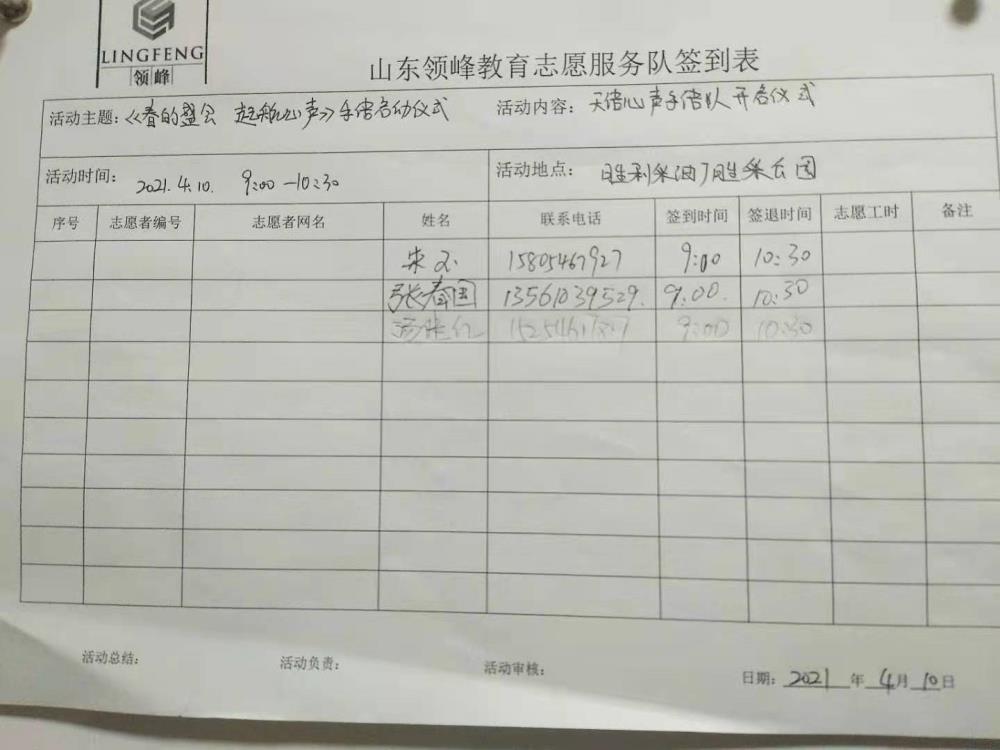 LINGFENG
领峰
山东领峰教育志愿服务队签到表
活动主题：《春的盛会 起航心声》手语启动仪式 活动内容：天使心声手语队开启仪式
活动时间： 2021.4.10. 9:00—10:30 活动地点： 胜利采油厂胜采公园
序号 志愿者编号 志愿者网名 姓名 联系电话 签到时间 签退时间 志愿工时 备注
宋 15805467927 9:00 10:30
张春国 13561039529. 9:00. 10:30
9:00 10:30
活动总结： 活动负责： 活动审核： 日期： 2021 年 4 月 10 日